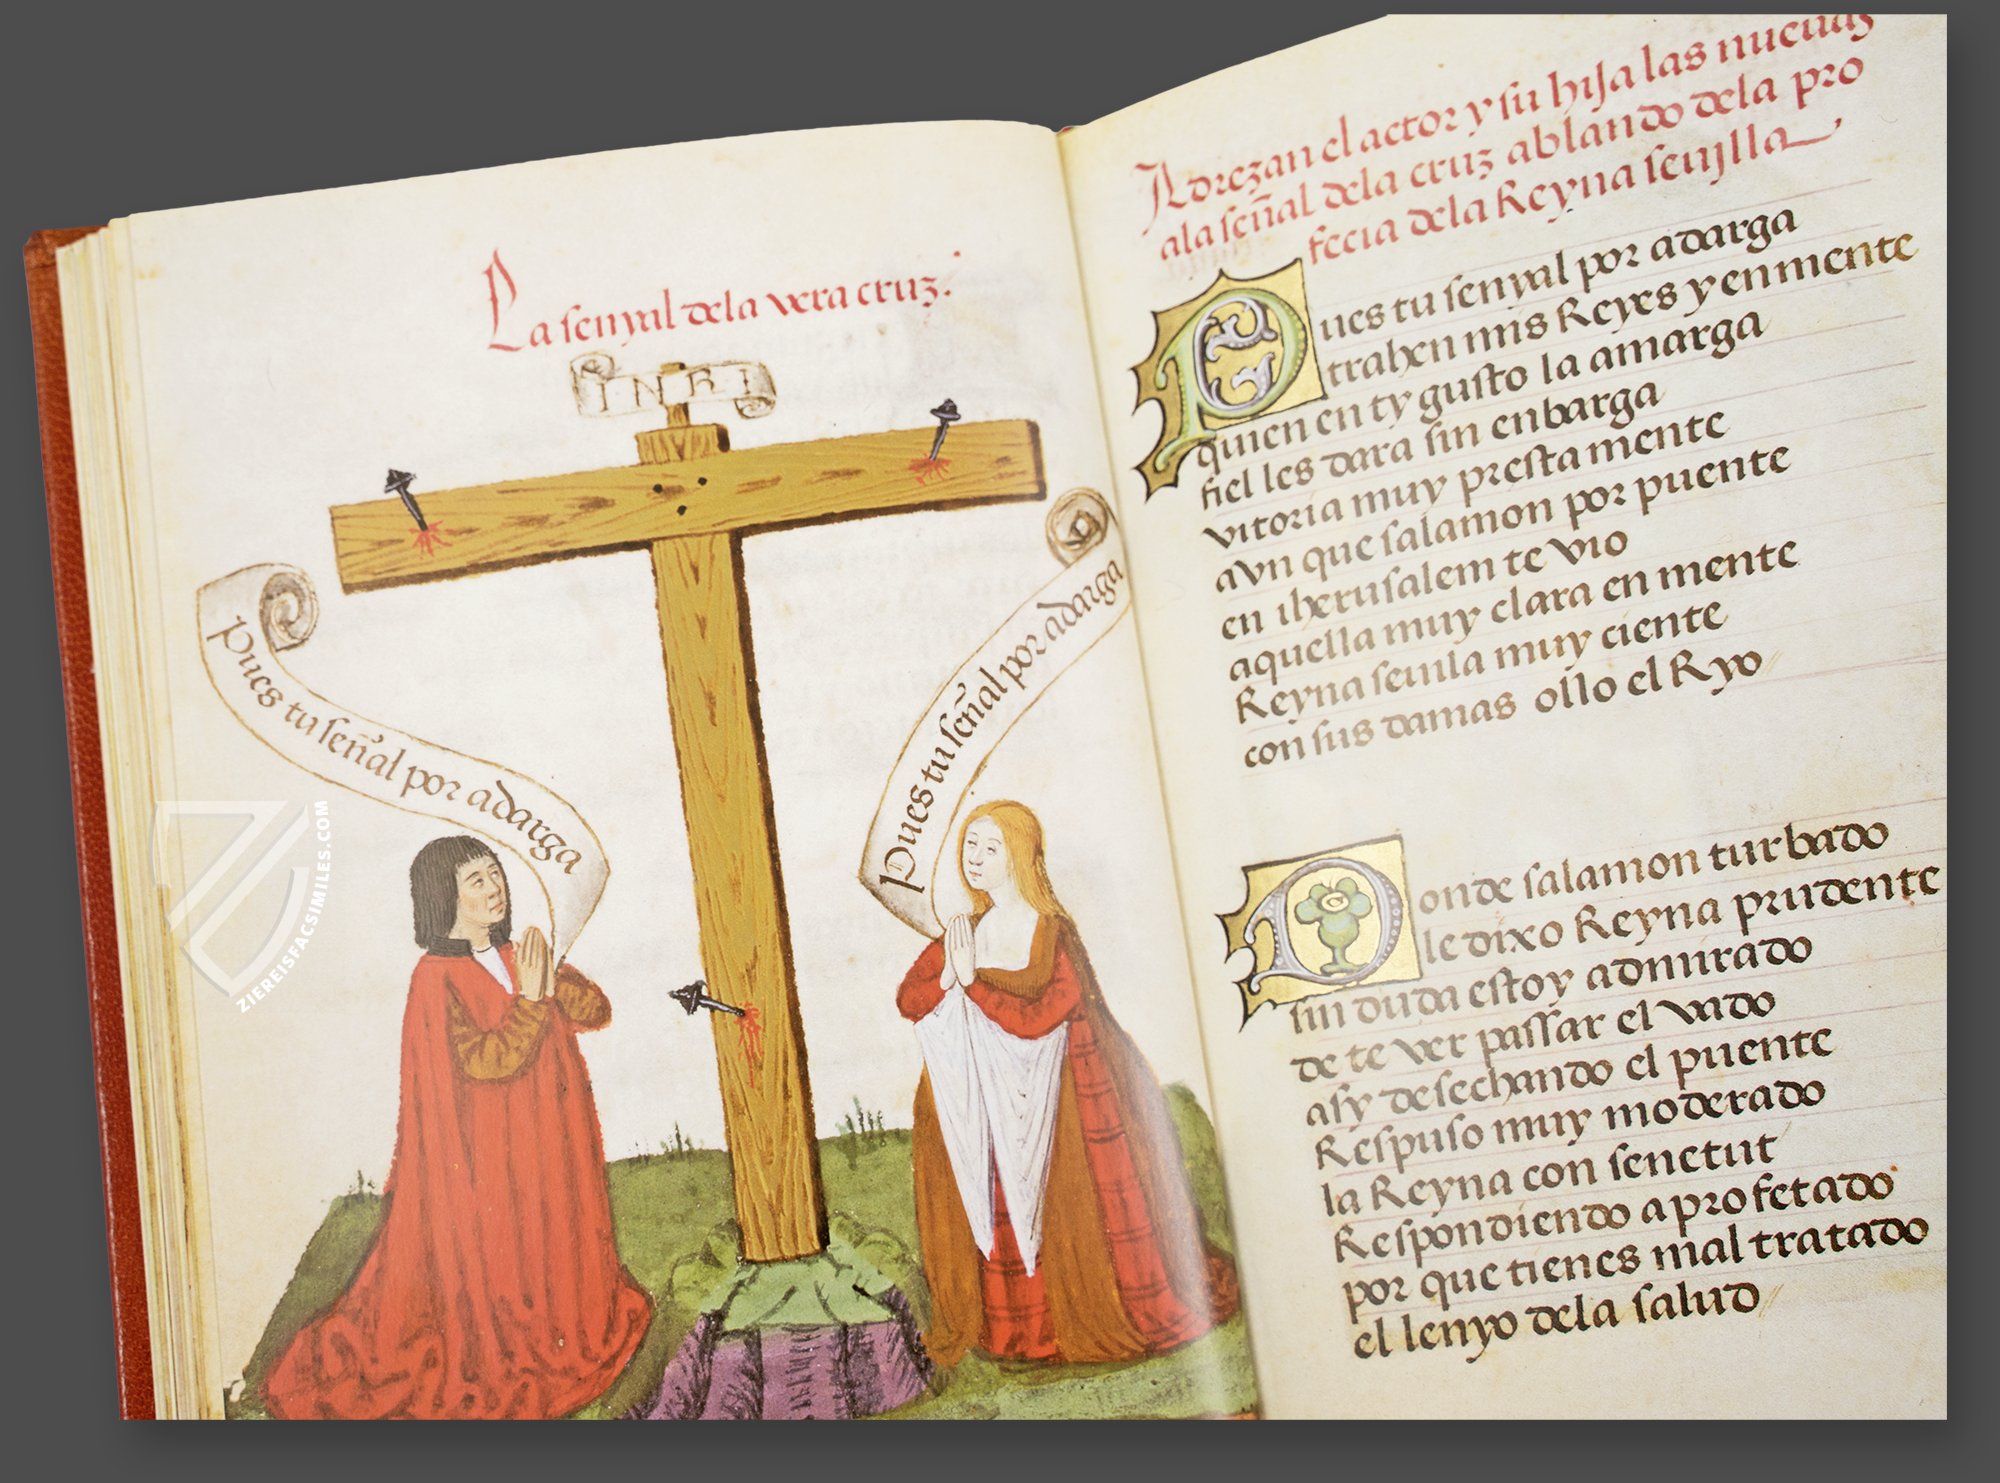 La senyal dela vera cruz.
INRI
Pues tu señal por adarga
Pues tu señal por adarga
ZIEREISFACSIMILES.COM
Adrezan el actor y su hija las nueuas
ala señal dela cruz ablando dela pro
fecia dela Reyna seujlla
Pues tu senyal por adarga
trahen mis Reyes y enmente
quien en ty gusto la amarga
fiel les dara sin enbarga
vitoria muy presta mente
avn que salamon por puente
en iherusalem te vio
aquella muy clara en mente
Reyna seuila muy ciente
con sus damas ollo el Ryo
Donde salamon turbado
le dixo Reyna prudente
sin duda estoy admirado
de te ver passar el vado
asy desechando el puente
Respuso muy moderado
la Reyna con senetut
Respondiendo a profetado
por que tienes mal tratado
el lenyo dela salud